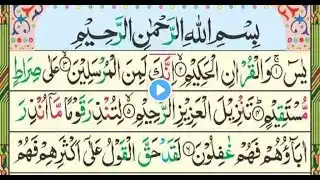 بِسْمِ اللهِ الرَّحْمٰنِ الرَّحِيْمِ
يٰسٓ ۚ۝۱ وَالْقُرْاٰنِ الْحَكِيْمِ ۙ۝۲ اِنَّكَ لَمِنَ الْمُرْسَلِيْنَ ۙ۝۳ عَلٰى صِرَاطٍ
مُّسْتَقِيْمٍ ؕ۝۴ تَنْزِيْلَ الْعَزِيْزِ الرَّحِيْمِ ۙ۝۵ لِتُنْذِرَ قَوْمًا مَّاۤ اُنْذِرَ
اٰبَآؤُهُمْ فَهُمْ غٰفِلُوْنَ ۝۶ لَقَدْ حَقَّ الْقَوْلُ عَلٰٓى اَكْثَرِهِمْ فَهُمْ